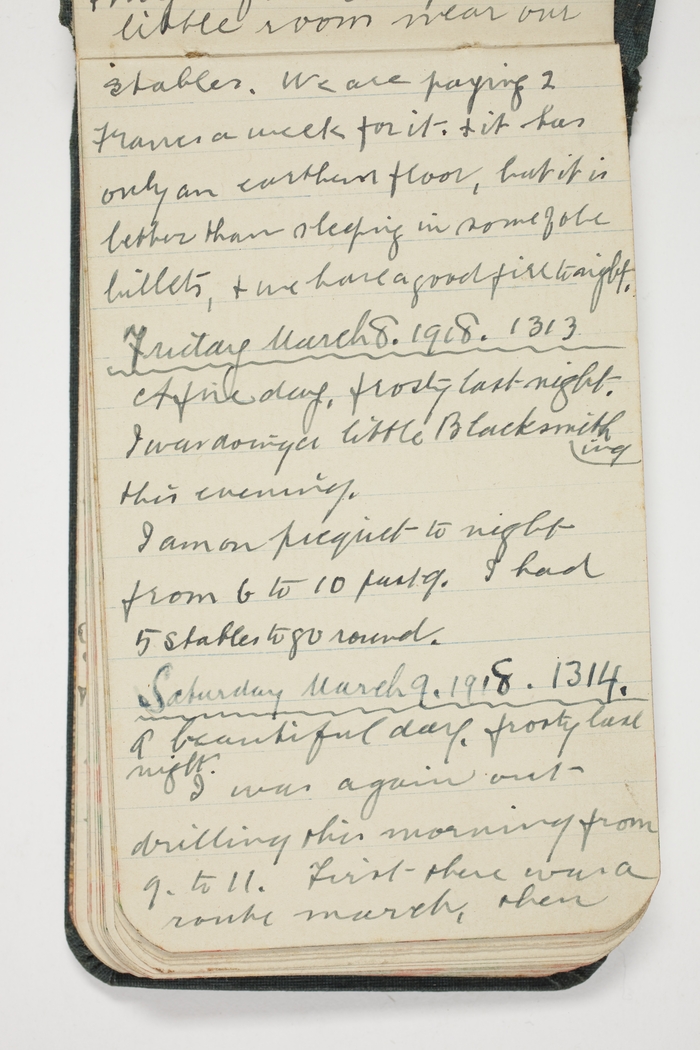 little room near our
stables. We are paying 2
Francs a week for it. & it has
only an earthern floor, but it is
better than sleeping in some of the
billets, & we have a good fire to night.
Friday March 8. 1918. 1313
A fine day, frosty last night.
I was doing a little Blacksmith
ing
this evening.
I am on picquet to night
from 6 to 10 past 9. I had
5 stables to go round.
Saturday March 9. 1918. 1314.
A beautiful day. frosty last
night.
I was again out
drilling this morning from
9. to 11. First there was a
route march, then